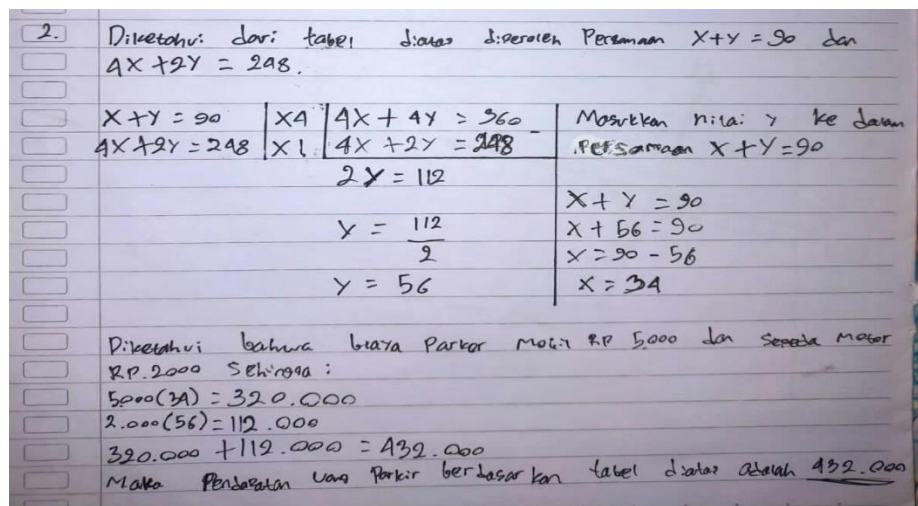 2. Diketahui dari tabel diatas diperoleh Persamaan X+Y = 90 dan
4X +2Y = 248.
X+Y = 90 | X4 | 4X + 4Y = 360
4X+2Y = 248 | X1 | 4X +2Y = 248 -
2Y = 112
Y = 112/2
Y = 56
Masukkan nilai y ke dalam
Persamaan X+Y=90
X+Y = 90
X + 56 = 90
X = 90 - 56
X = 34
Diketahui bahwa biaya Parkir mobil RP 5.000 dan Sepeda Motor
RP.2000 Sehingga :
5000(34) = 320.000
2.000(56) = 112.000
320.000 +112.000 = 432.000
Maka Pendapatan uang Parkir berdasarkan tabel diatas adalah 432.000